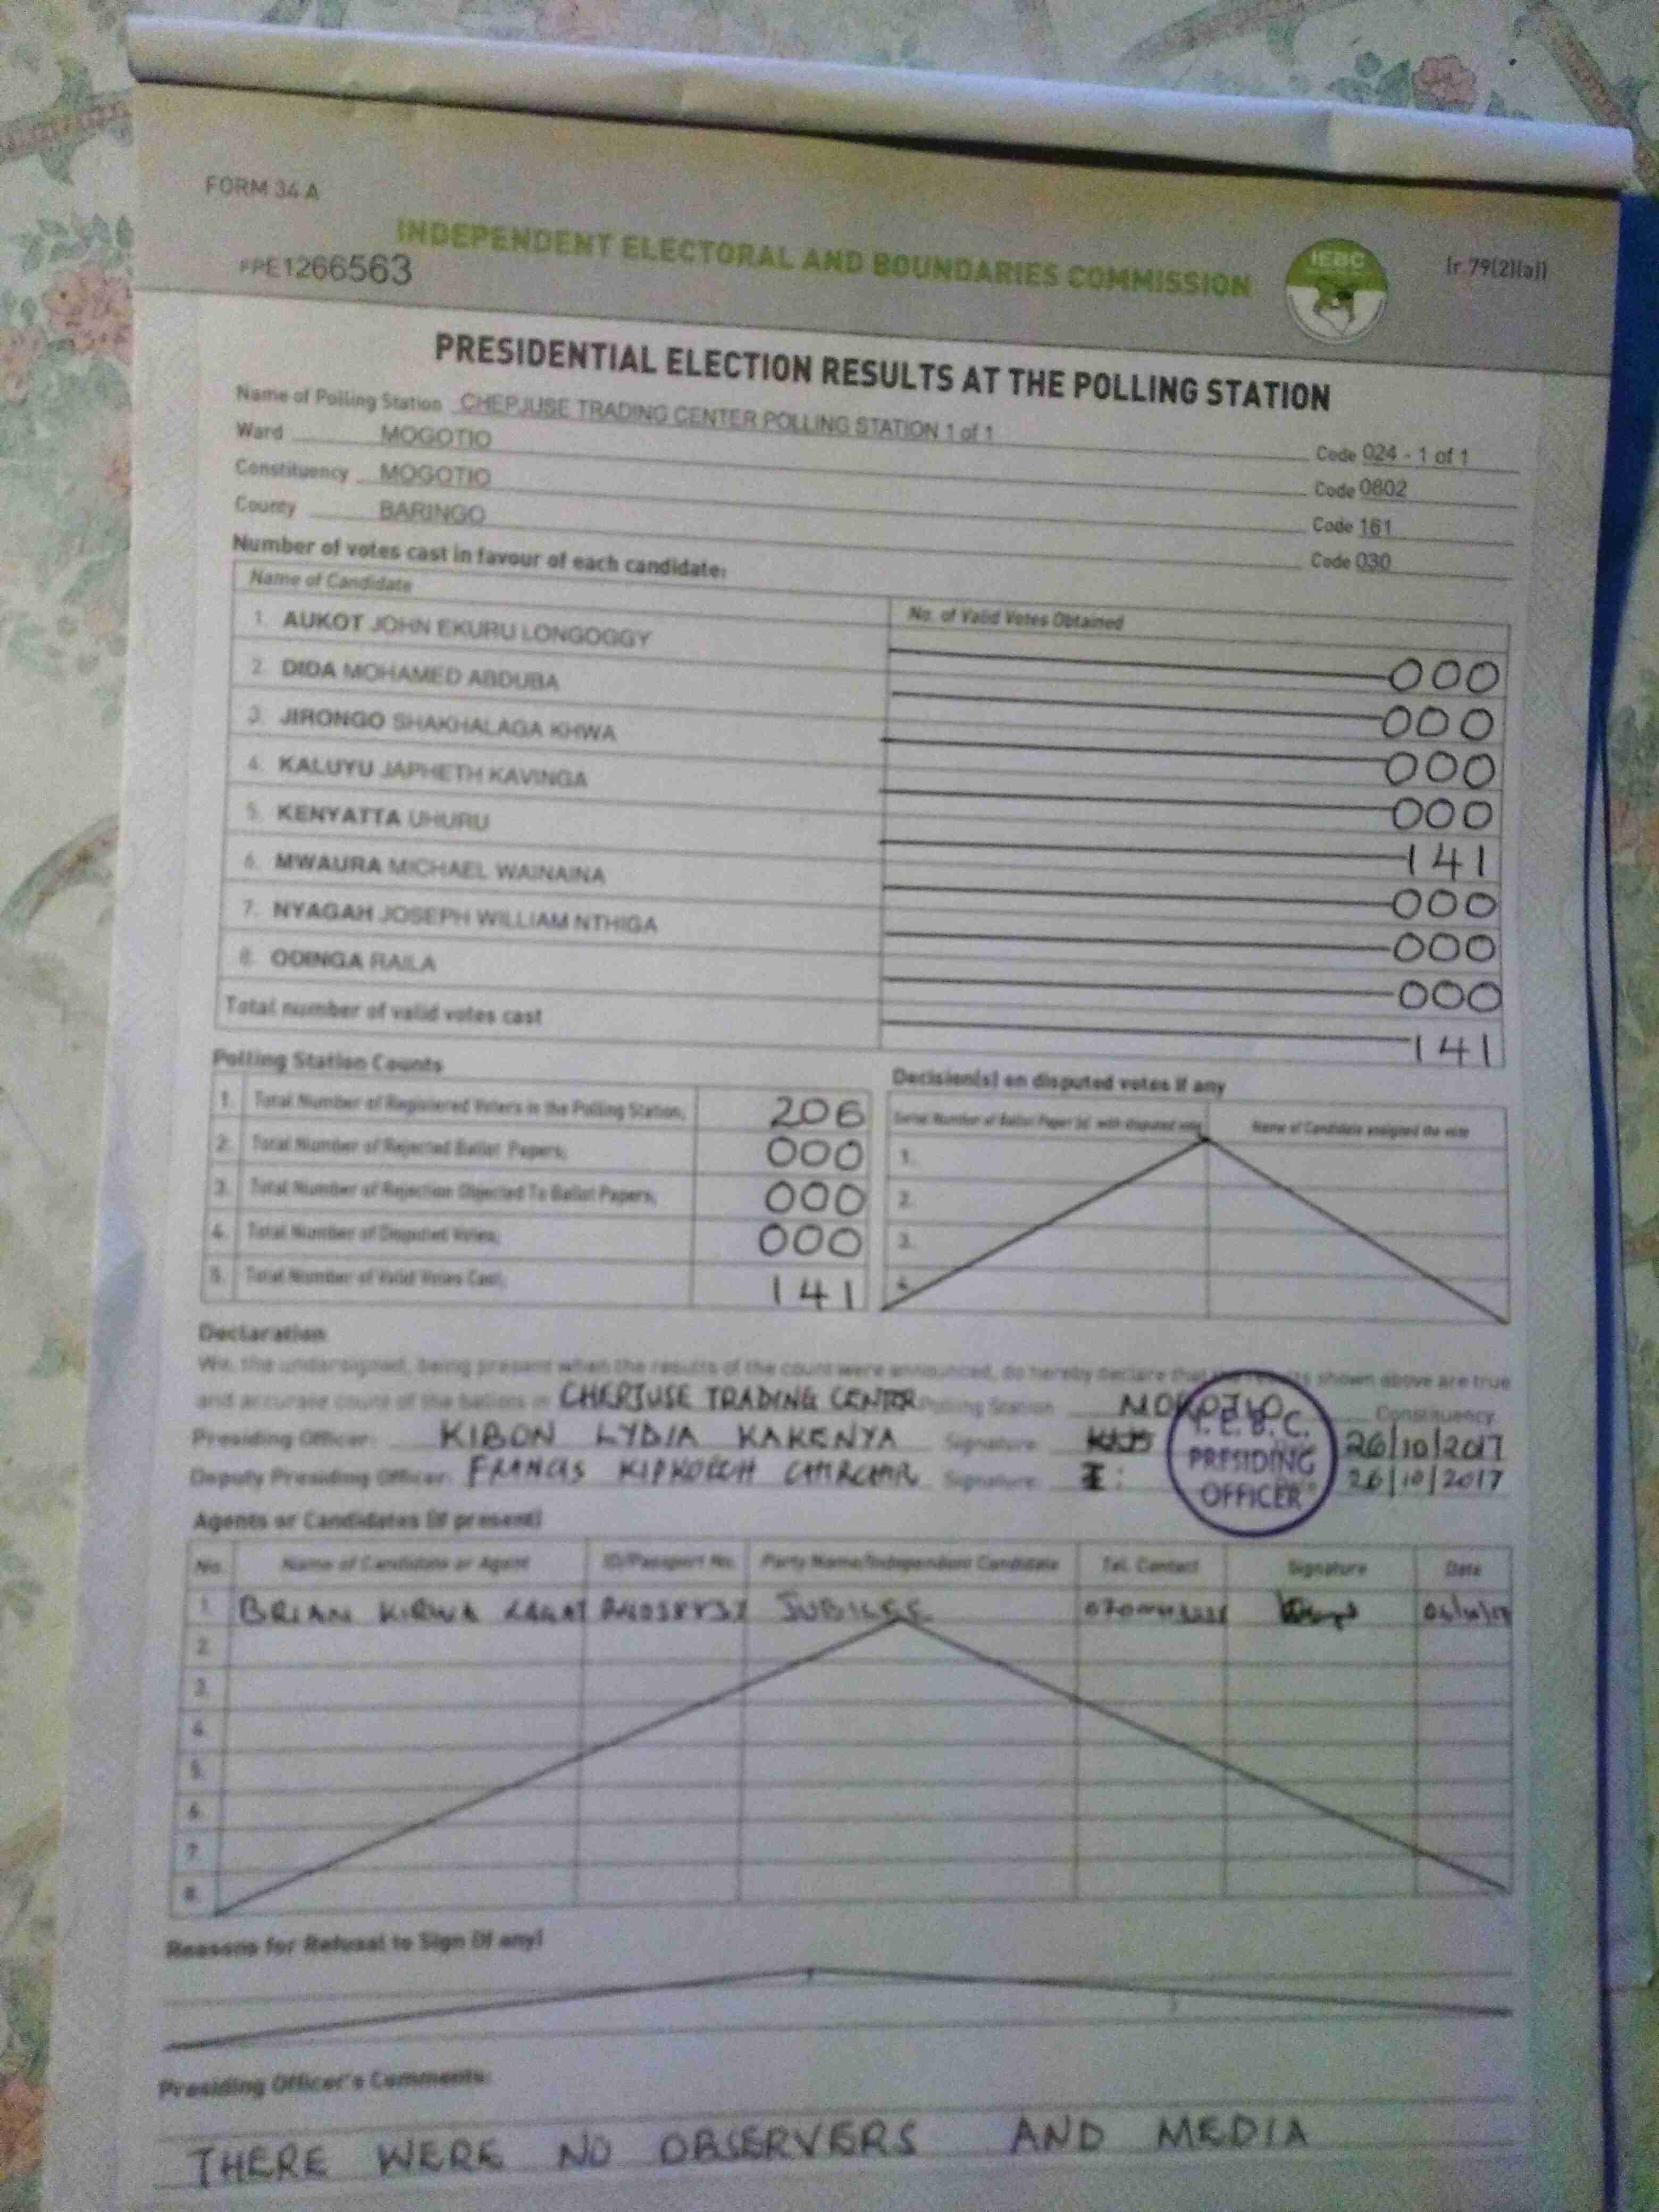 FORM 34 A
INDEPENDENT ELECTORAL AND BOUNDARIES COMMISSION
IEBC
(r.79(2)(a))
PPE1266563
PRESIDENTIAL ELECTION RESULTS AT THE POLLING STATION
Name of Polling Station CHEPJUSE TRADING CENTER POLLING STATION 1 of 1 Code 024 - 1 of 1
Ward MOGOTIO Code 0802
Constituency MOGOTIO Code 161
County BARINGO Code 030
Number of votes cast in favour of each candidate:
Name of Candidate No. of Valid Votes Obtained
1. AUKOT JOHN EKURU LONGOGGY 000
2. DIDA MOHAMED ABDUBA 000
3. JIRONGO SHAKHALAGA KHWA 000
4. KALUYU JAPHETH KAVINGA 000
5. KENYATTA UHURU 141
6. MWAURA MICHAEL WAINAINA 000
7. NYAGAH JOSEPH WILLIAM NTHIGA 000
8. ODINGA RAILA 000
Total number of valid votes cast 141
Polling Station Counts
1. Total Number of Registered Voters in the Polling Station; 206
2. Total Number of Rejected Ballot Papers; 000
3. Total Number of Rejection Objected To Ballot Papers; 000
4. Total Number of Disputed Votes; 000
5. Total Number of Valid Votes Cast; 141
Decision(s) on disputed votes if any
Serial Number of Ballot Paper (s) with disputed vote Name of Candidate assigned the vote
1.
2.
3.
4.
Declaration
We, the undersigned, being present when the results of the count were announced, do hereby declare that the results shown above are true
and accurate count of the ballots in CHEPJUSE TRADING CENTER Polling Station MOGOTIO Constituency
Presiding Officer: KIBON LYDIA KAKENYA Signature 26/10/2017
Deputy Presiding Officer: FRANCIS KIPKOECH CHIRCHIR Signature 26/10/2017
I.E.B.C.
PRESIDING
OFFICER
Agents or Candidates (if present)
No. Name of Candidate or Agent ID/Passport No. Party Name/Independent Candidate Tel. Contact Signature Date
1. BRIAN KIRWA JUBILEE
2.
3.
4.
5.
6.
7.
8.
Reasons for Refusal to Sign (if any)
Presiding Officer's Comments:
THERE WERE NO OBSERVERS AND MEDIA